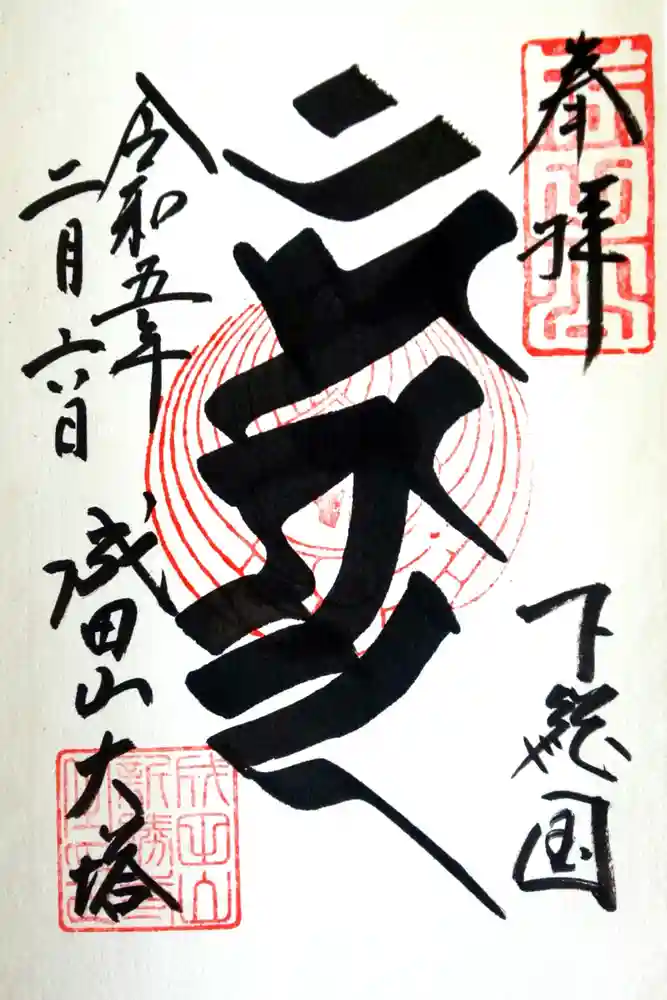 奉拝
下総国
令和五年
二月六日
成田山大塔
成田山
新勝寺